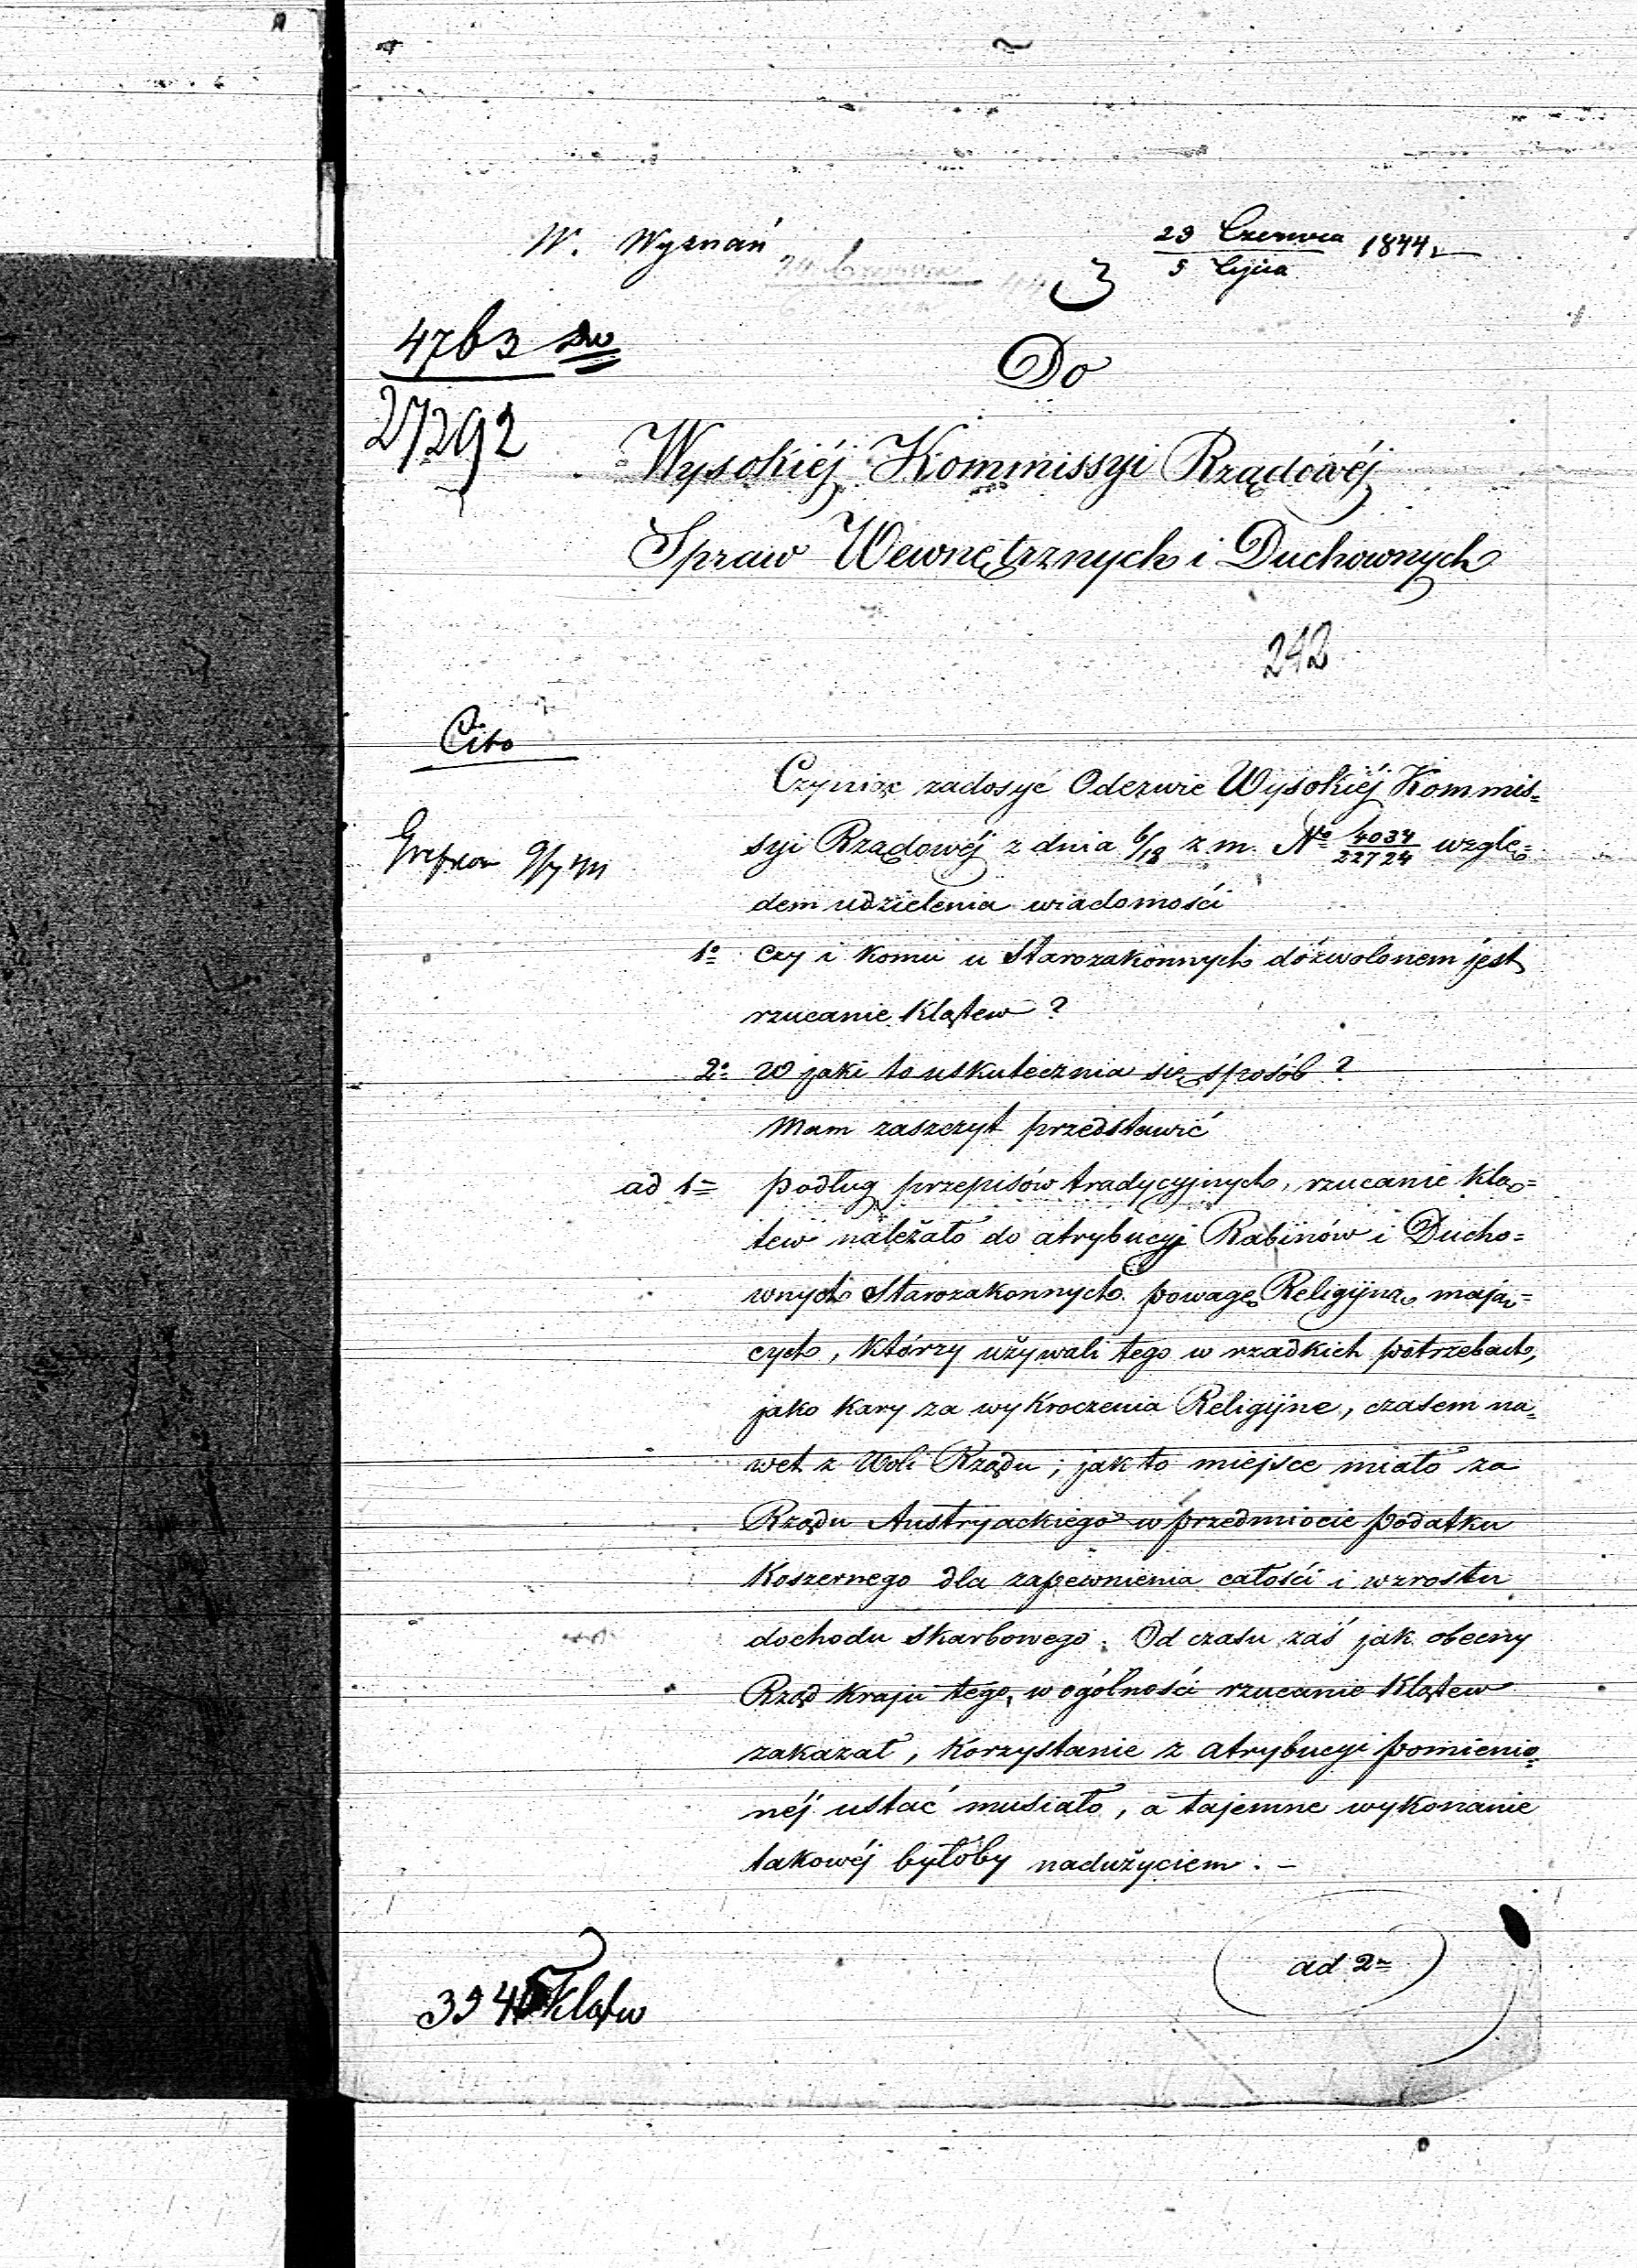 W. Wyznań
23 Czerwca 1844 r
5 Lipca
3
4763
27292
Do
Wysokiéj Kommissyi Rządowéj
Spraw Wewnętrznych i Duchownych
242
Cito
Czyniąc zadosyć Odezwie Wysokiéj Kommis=
syi Rządowéj z dnia 6/18 z. m. No 4034/22724 wzglę=
dem udzielenia wiadomości
1o czy i komu u Starozakonnych dozwolonem jest
rzucanie klątew?
2o W jaki to uskutecznia się sposób?
Mam zaszczyt przedstawić
ad 1= podług przepisów tradycyjnych, rzucanie klą=
tew należało do atrybucyj Rabinów i Ducho=
wnych Starozakonnych powagę Religijną mają=
cych, którzy używali tego w rzadkich potrzebach,
jako kary za wykroczenia Religijne, czasem na=
wet z Woli Rządu; jak to miejsce miało za
Rządu Austryackiego w przedmiocie podatku
Koszernego dla zapewnienia całości i wzrostu
dochodu skarbowego. Od czasu zaś jak obecny
Rząd kraju tego, w ogólności rzucanie klątew
zakazał, korzystanie z atrybucyi pomienio=
néj ustać musiało, a tajemne wykonanie
takowéj byłoby nadużyciem. –
ad 2=
klątw